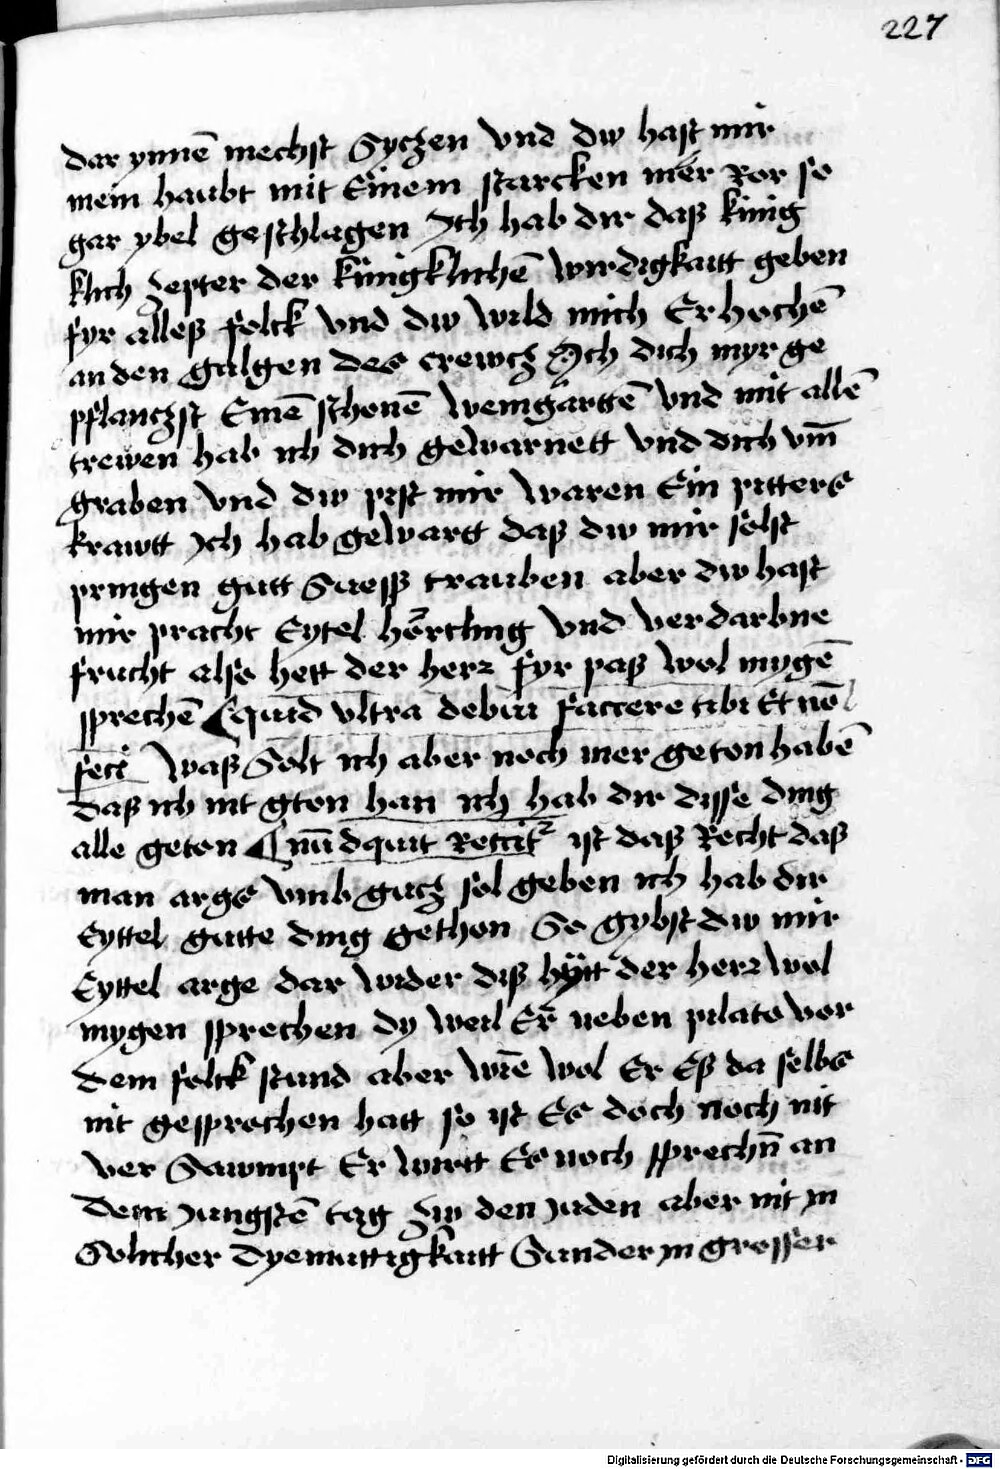 227
dar ynnē mechst Syczen vnd dw hast mir
mein haubt mit Einem starcken mer Ror so
gar ybel geschlagen Jch hab dir daß kinig
klich zepter der künigklichē wirdigkaitt geben
fyr alleß folck vnd dw wild mich Erhochē
an den galgen des crewcz Jch dich myr ge
pflanczst Einē schonē weingarttē vnd mit allē
trewen hab ich dich gewarnett vnd dich vm̄
graben vnd dw pist mir waren Ein pitters
krawtt Jch hab gewartt daß dw mir solst
pringen gutt Suess trauben aber dw hast
mir pracht Eytel hörtling vnd verdarbne
frucht also hett der herz fyr paß wol mygē
sprechē Quid vltra debui faccere tibi Et nō
feci Waß Solt ich aber noch mer geton habē
daß ich nit gton han ich hab dir disse ding
alle geton Nū dquit Reccit ist daß Recht daß
man args vmb gucz sol geben ich hab dir
Eyttel gutte ding gethon So gybst dw mir
Eyttel arge dar wider diß hÿtt der herz wol
mygen sprechen dy weil Er neben pilato vor
dem folck stund aber wie wol Er Eß da selbs
nit gesprochen hatt so ist Es doch noch nit
ver Sawmpt Er wirtt Es noch sprechn̄ an
dem Jungstē tag zw den Juden aber nit in
Solicher dyemuttigkaitt Sunder in grosser
Digitalisierung gefördert durch die Deutsche Forschungsgemeinschaft - DFG